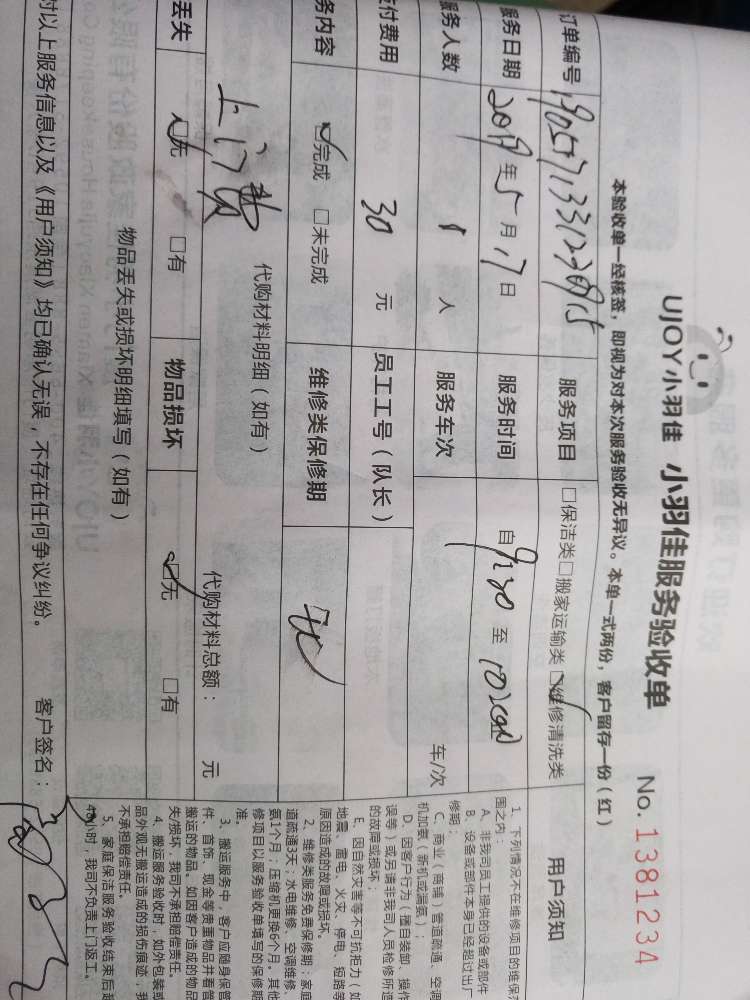 UJOY小羽佳 小羽佳服务验收单 No. 1381234
本验收单一经核签，即视为对本次服务验收无异议。本单一式两份，客户留存一份（红）
订单编号 服务项目 □保洁类□搬家运输类□维修清洗类
服务日期 2019年5月17日 服务时间 自9:30至
服务人数 1 人 服务车次 车/次
应付费用 30 元 员工工号（队长）
务内容 □完成 □未完成 维修类保修期 无
上门费 代购材料明细（如有） 代购材料总额： 元
丢失 □无 □有 物品损坏 □无 □有
物品丢失或损坏明细填写（如有）
对以上服务信息以及《用户须知》均已确认无误，不存在任何争议纠纷。 客户签名：
用户须知
1、下列情况不在维修项目的维保范
围之内：
A、非我司员工提供的设备或部件
B、设备或部件本身已经超过出厂
修期；
C、商业（商铺）管道疏通、空调
机加氨（新机或漏氨）；
D、因客户行为（擅自装卸、操作
误等）或另请非我司人员抢修所造
的故障或损坏；
E、因自然灾害等不可抗拒力（如
地震、雷电、火灾、停电、短路等
原因造成的故障或损坏。
2、维修类服务免费保修期：家庭
道疏通3天；水电维修、空调维修、
氨1个月；压缩机更换6个月。其他
修项目以服务验收单填写的保修期
准。
3、搬运服务中，客户应随身保管
件、首饰、现金等贵重物品并看管
搬运的物品，如因客户造成的物品
失损坏，我司不承担赔偿责任。
4、搬运服务验收时，如外包装或
品外观无搬运造成的损伤痕迹，我
不承担赔偿责任。
5、家庭保洁服务验收结束后超
48小时，我司不负责上门返工。